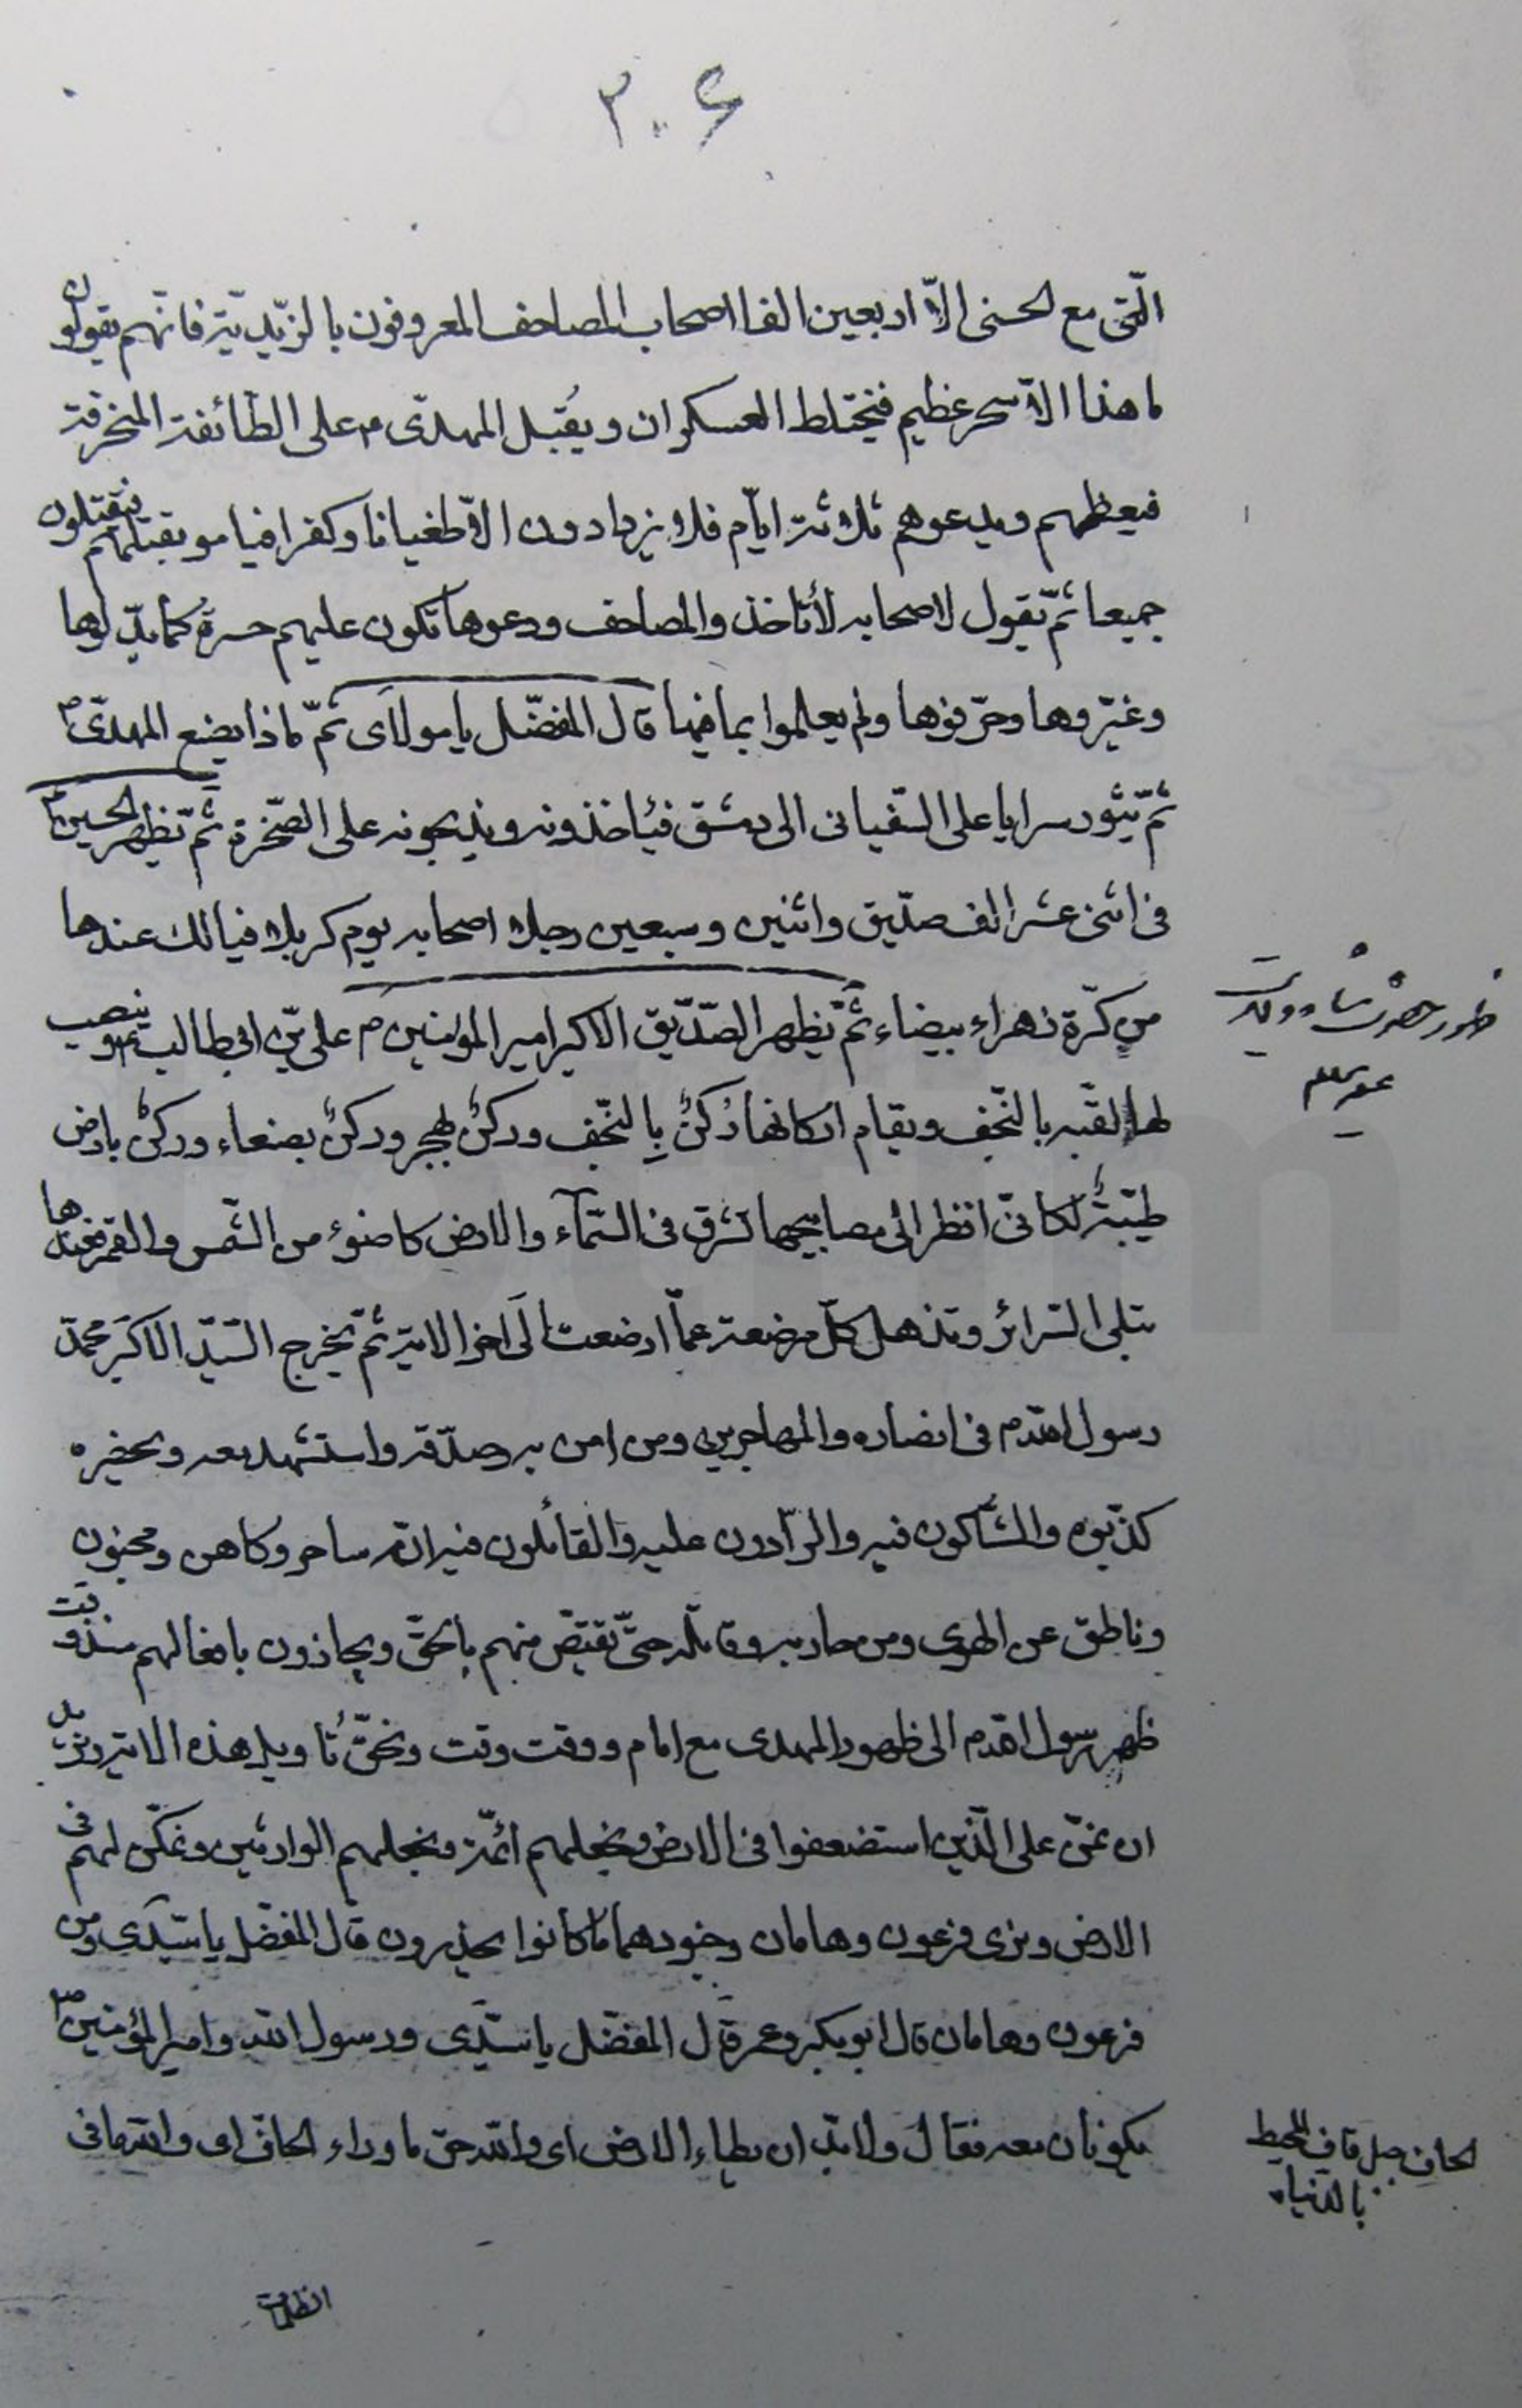 ٣٠۶
الّتی مع الحسنی الّا اربعین الفا اصحاب المصاحف المعروفون بالزّیدیّة فانّهم یقولون
ما هذا الّا سحر عظیم فیختلط العسکران و یُقبل المهدّی ۴م علی الطّائفة المنحرفة
فیعظهم ویدعوهم ثلاثة ایّام فلا یزدادون الّا طغیانا وکفرا فیامر بقتلهم فیقتلون
جمیعا ثمّ یقول لاصحابه لا تاخذوا المصاحف ودعوها تکون علیهم حسرة کما بدّلوها
وغیّروها وحرّفوها ولم یعلموا بما فیها قال المفضّل یا مولای ثمّ ماذا یصنع المهدّی ۴م
ثمّ یثور سرایا علی السّفیانی الی دمشق فیاخذونه ویذبحونه علی الصّخرة ثمّ یظهر الحسین ۴م
فی اثنی عشر الف صدّیق واثنین وسبعین رجلا اصحابه یوم کربلا فیالك عندها
من کرّة زهراء بیضاء ثمّ یظهر الصّدّیق الاکبر امیر المؤمنین م علی بن ابی طالب ۴م وینصب
لها القبّه بالنّجف ویقام ارکانها رُکنٌ بِالنّجف ورکنٌ بهجر ورکنٌ بصنعاء ورکنٌ بارض
طیّبة لکانّی انظر الی مصابیحها تشرق فی السّمآء والارض کاضوء من الشّمس والقمر فعندها
تبلی السّرائر وتذهل کلّ مرضعة عمّا ارضعت الَی اخر الایة ثمّ یخرج السّیّد الاکبَر محمّد
رسول الله م فی انصاره والمهاجرین ومن امن به وصدّقه واستشهد معه ویحضره
کذّبوه والشّآکون فیه والرّآدون علیه والقائلون فیه انّه ساحر وکاهن ومجنون
وناطق عن الهوی ومن حاربه وقاتله حتّی یقتصّ منهم بالحقّ ویجازون بافعالهم منذ وقت
ظهر رسول الله م الی ظهور المهدی مع امام ووقت وقت ویحقّ تاویل هذه الایة ونرید
ان نمنّ علی الّذین استضعفوا فی الارض ونجعلهم ائمّة ونجعلهم الوارثین ونمکّن لهم فی
الارض ونری فرعون وهامان وجنودهما ما کانوا یحذرون قال المفضّل یا سیّدی ومن
فرعون وهامان قال ابوبکر وعمر قال المفضّل یا سیّدی ورسول الله وامیر المؤمنین ۴م
یکونان معه فقال ولا بدّ ان یطاء الارض ای والله حتی ما وراء الحاف ای والله ما فی
ظهور حضرت شاه ولایت
الحاف جبل قاف المحیط
بالدّنیا
الظلمات